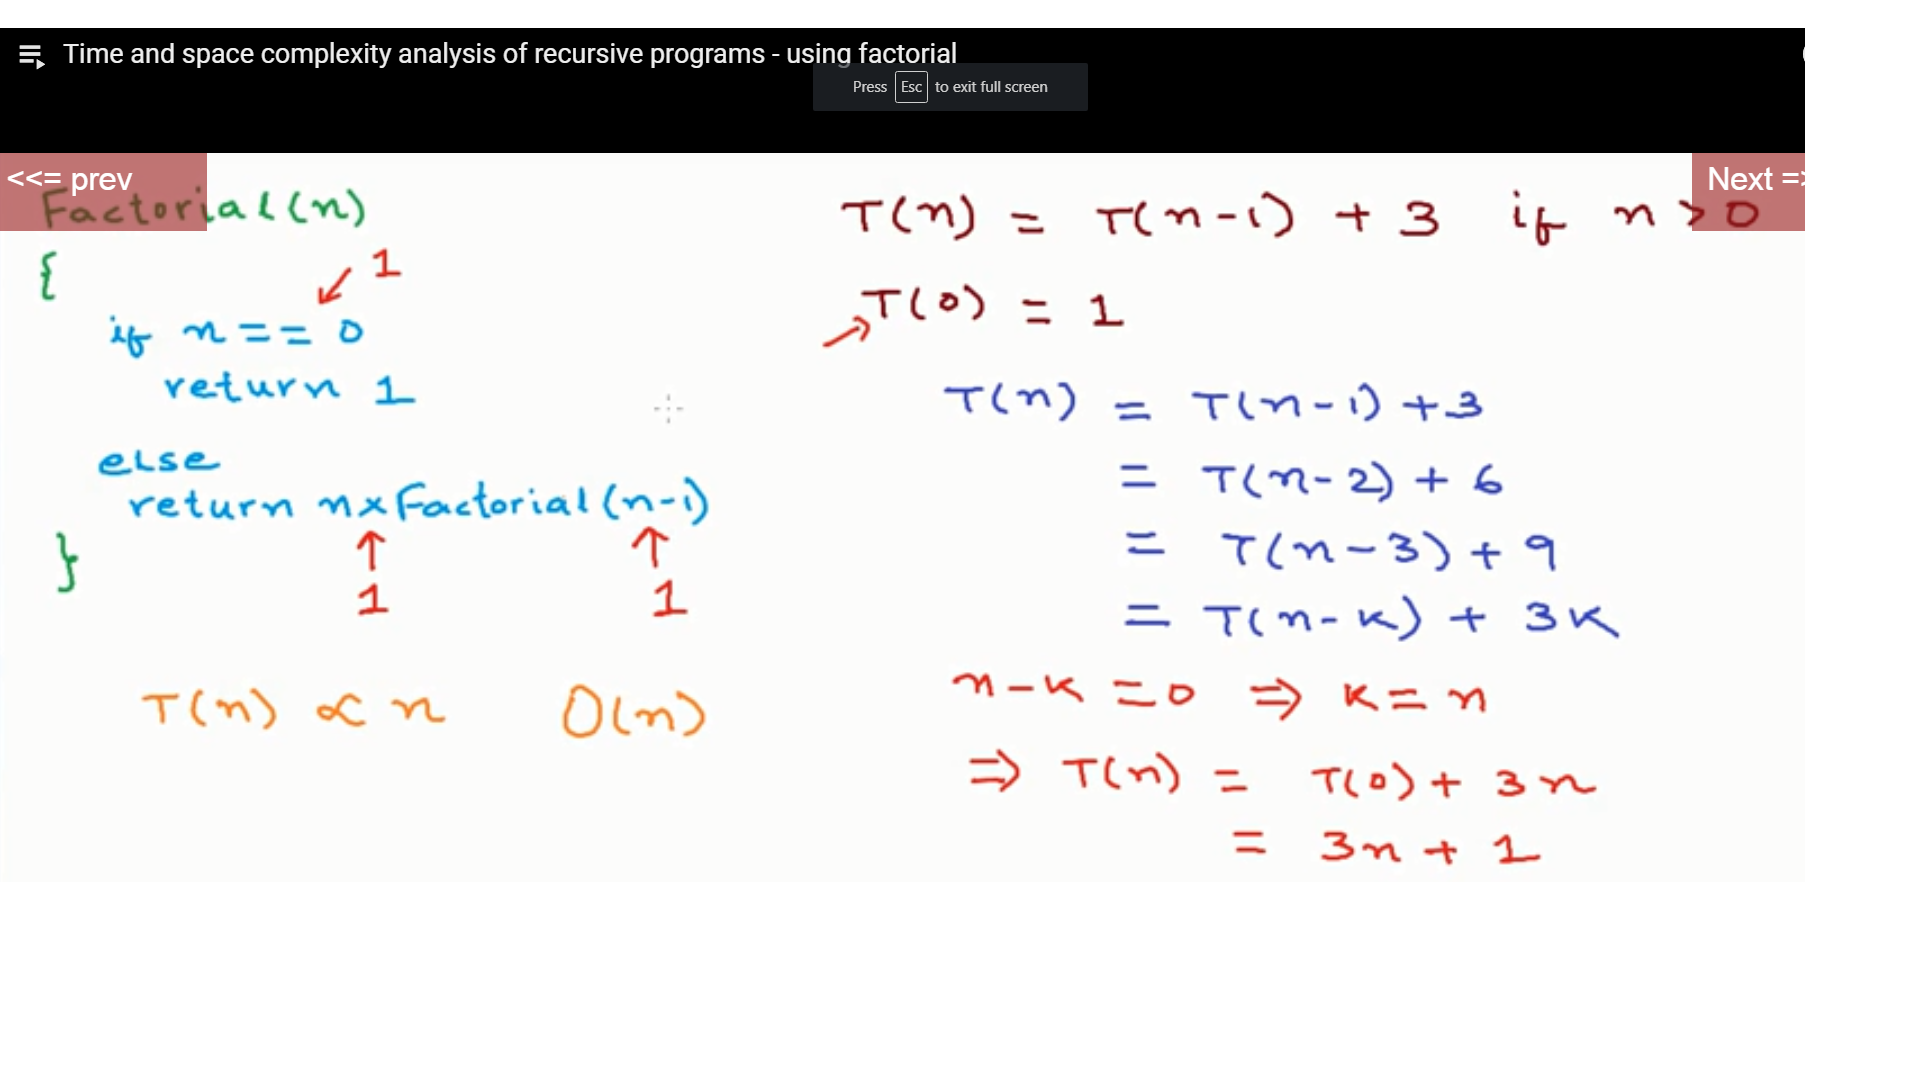 Time and space complexity analysis of recursive programs - using factorial
Press Esc to exit full screen
<<= prev
Next =>
Factorial(n)
{
1
if n == 0
return 1
else
return n x Factorial(n-1)
}
1 1
T(n) ∝ n O(n)
T(n) = T(n-1) + 3 if n > 0
T(0) = 1
T(n) = T(n-1) + 3
= T(n-2) + 6
= T(n-3) + 9
= T(n-k) + 3k
n-k = 0 ⇒ k = n
⇒ T(n) = T(0) + 3n
= 3n + 1